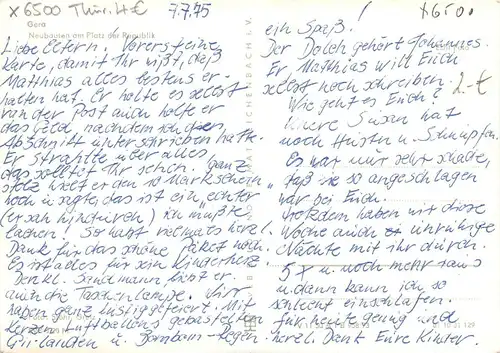 x 6500 Thür. 4€
7.7.75
x650.
Gera
Neubauten am Platz der Republik
Liebe Eltern. Vorerst eine
Karte, damit Ihr wißt, daß
Matthias alles bestens er-
halten hat. Er holte es selbst
von der Post auch holte er
das Geld nachdem ich den
Abschnitt unterschrieben hatte.
Er strahlte über alles,
das solltet Ihr sehen. Ganz
stolz hielt er den 10 Markschein
hoch u. sagte, das ist ein "echter"
(er sah hindurch) ich mußte
lachen! So habt vielmals herzl.
Dank für das schöne Paket noch.
Es ist alles für sein Kinderherz
Denkl. Sandmann, liebt er
auch die Taschenlampe. Wir
haben ganz lustig gefeiert. Mit
Kerzen Luftballons gebastelten
Girlanden u. Bombom-Regen.
ein Spaß!
Der Dolch gehört Johannes.
Er Matthias will Euch
selbst noch schreiben.
2.-€
Wie geht es Euch?
Unsere Susan hat
noch Husten u. Schnupfen
Es war nur sehr schade,
daß sie so angeschlagen
war bei Euch.
Trotzdem haben wir diese
Woche auch unruhige
Nächte mit ihr durch.
5 x u. noch mehr raus
u. dann kann ich so
schlecht einschlafen.
Für heute genug und
herzl. Dank Eure Kinder.
REICHENBACH I. V.